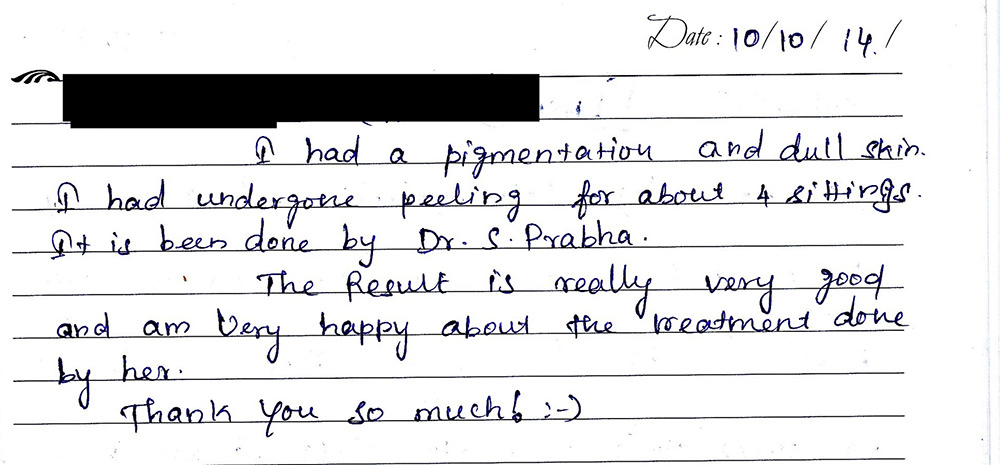 Date: 10/10/ 14./
I had a pigmentation and dull skin.
I had undergone peeling for about 4 sittings.
It is been done by Dr. S. Prabha.
The Result is really very good
and am Very happy about the treatment done
by her.
Thank you so much! :-)